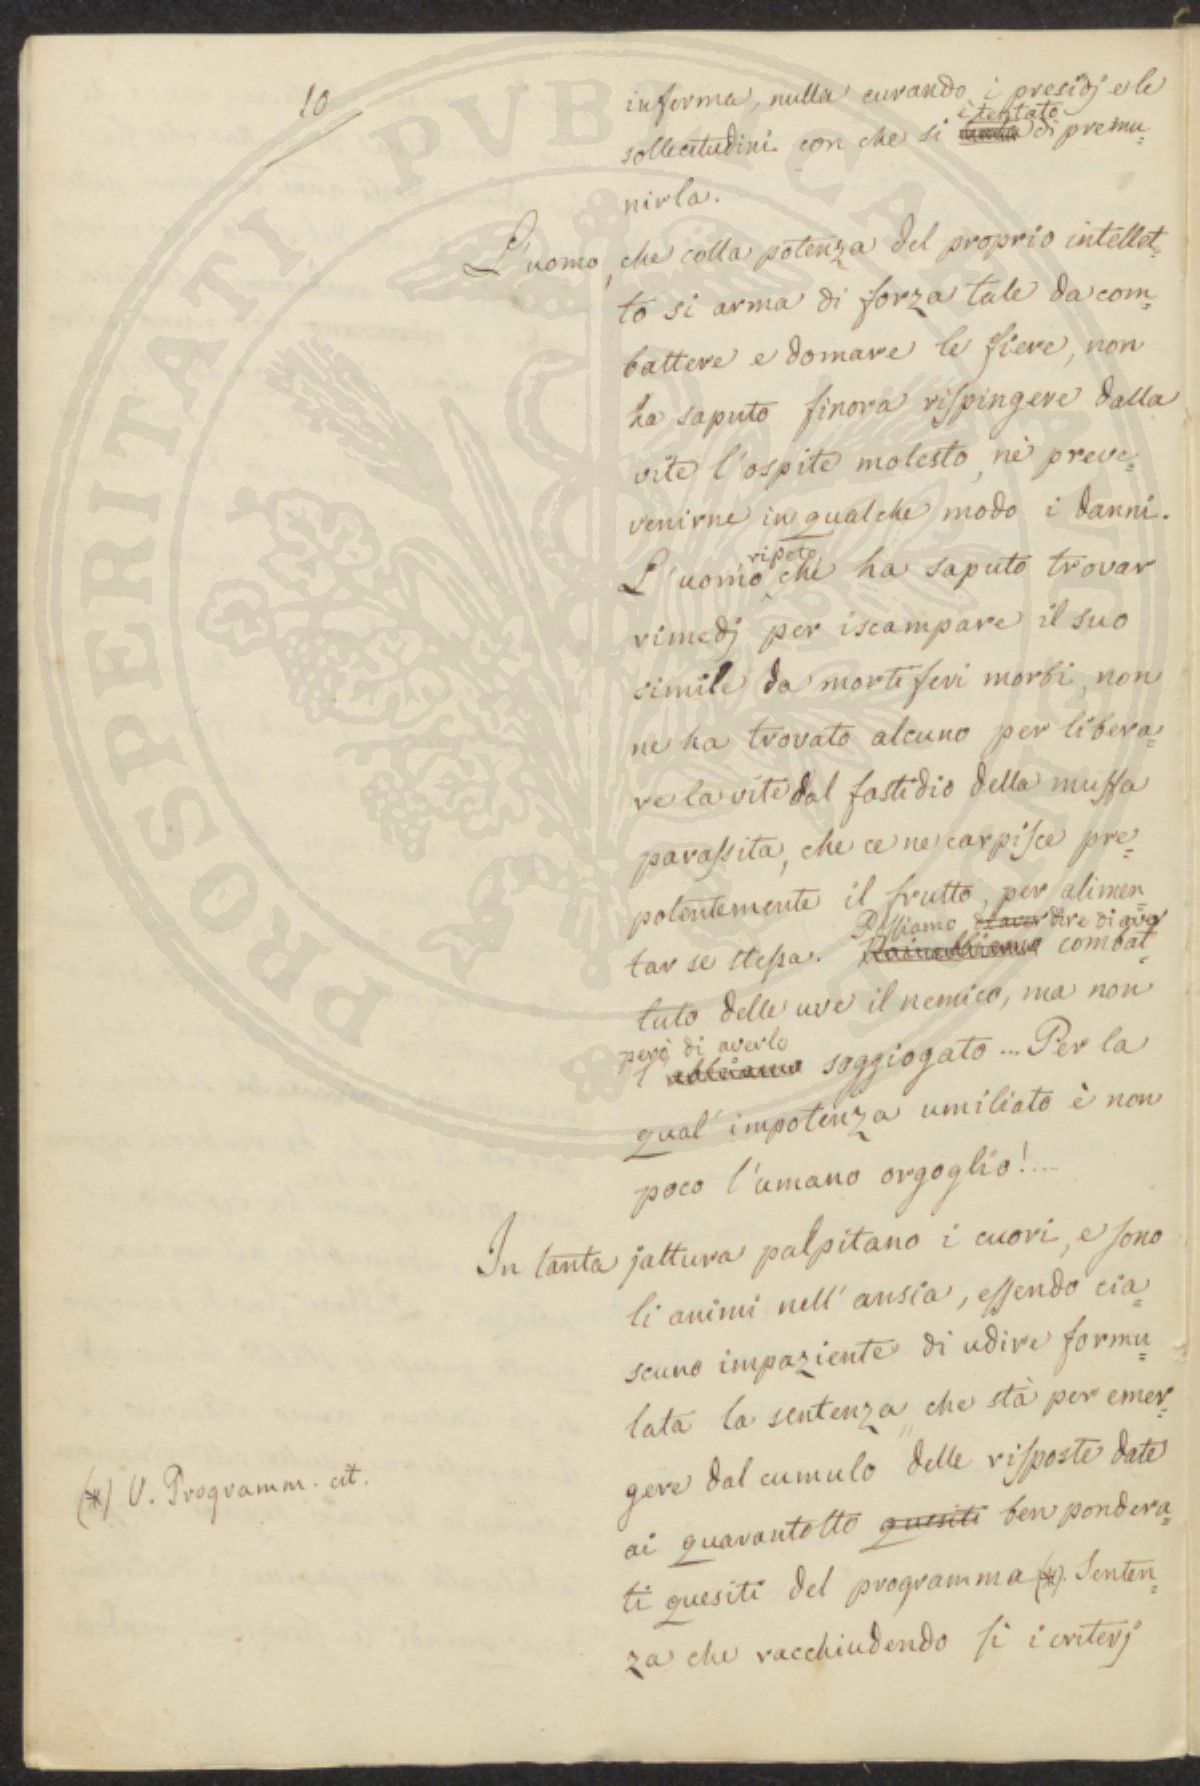 10
informa, nulla curando i presidj e le
è tentato
sollecitudini con che si tenta di premu=
nirla.
L'uomo, che colla potenza del proprio intellet=
to si arma di forza tale da com=
battere e domare le fiere, non
ha saputo finora rispingere dalla
vite l'ospite molesto, nè preve=
venirne in qualche modo i danni.
ripeto
L'uomo che ha saputo trovar
rimedj per iscampare il suo
simile da mortiferi morbi, non
ne ha trovato alcuno per libera=
re la vite dal fastidio della muffa
parassita, che ce ne carpisce pre=
potentemente il frutto, per alimen=
Possiamo di aver dire di aver
tar se stessa. combat=
tuto delle uve il nemico, ma non
però di averlo
l'abbiamo soggiogato... Per la
qual' impotenza umiliato è non
poco l'umano orgoglio!....
In tanta jattura palpitano i cuori, e sono
li animi nell' ansia, essendo cia=
scuno impaziente di udire formu=
lata la sentenza, che stà per emer=
gere dal cumulo delle risposte date
ai quarantotto quesiti ben pondera=
ti quesiti del programma (*). Senten=
za che racchiudendo sì i criterj
(*) V. Programm. cit.
PROSPERITATI PVBLICAE AVGENDAE